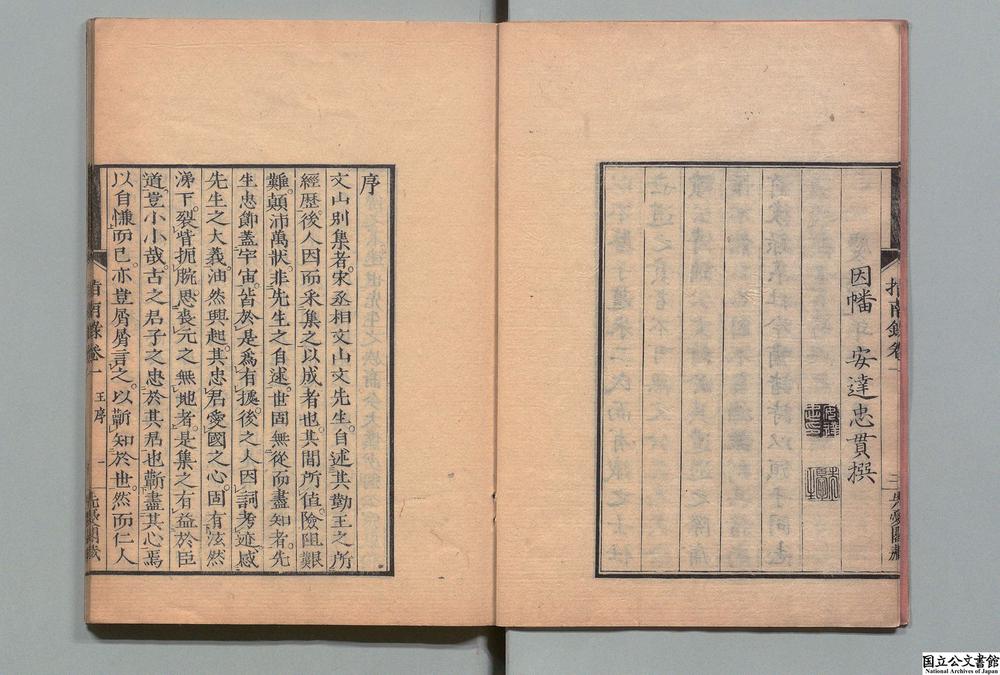 因幡 安達忠貫撰
指南錄卷一
三
先憂閣藏
序
文山別集者宋丞相文山文先生自述其勤王之所
經歷後人因而采集之以成者也其間所值險阻艱
難顛沛萬狀非先生之自述世固無從而盡知者先
生忠節蓋宇宙皆於是爲有據後之人因詞考迹感
先生之大義油然興起其忠君愛國之心固有泫然
涕下裂眥扼腕思喪元之無地者是集之有益於臣
道豈小小哉古之君子之忠於其君也蘄盡其心焉
以自慊而已亦豈屑屑言之以蘄知於世然而仁人
指南錄卷一
王序
一
先憂閣藏
国立公文書館
National Archives of Japan